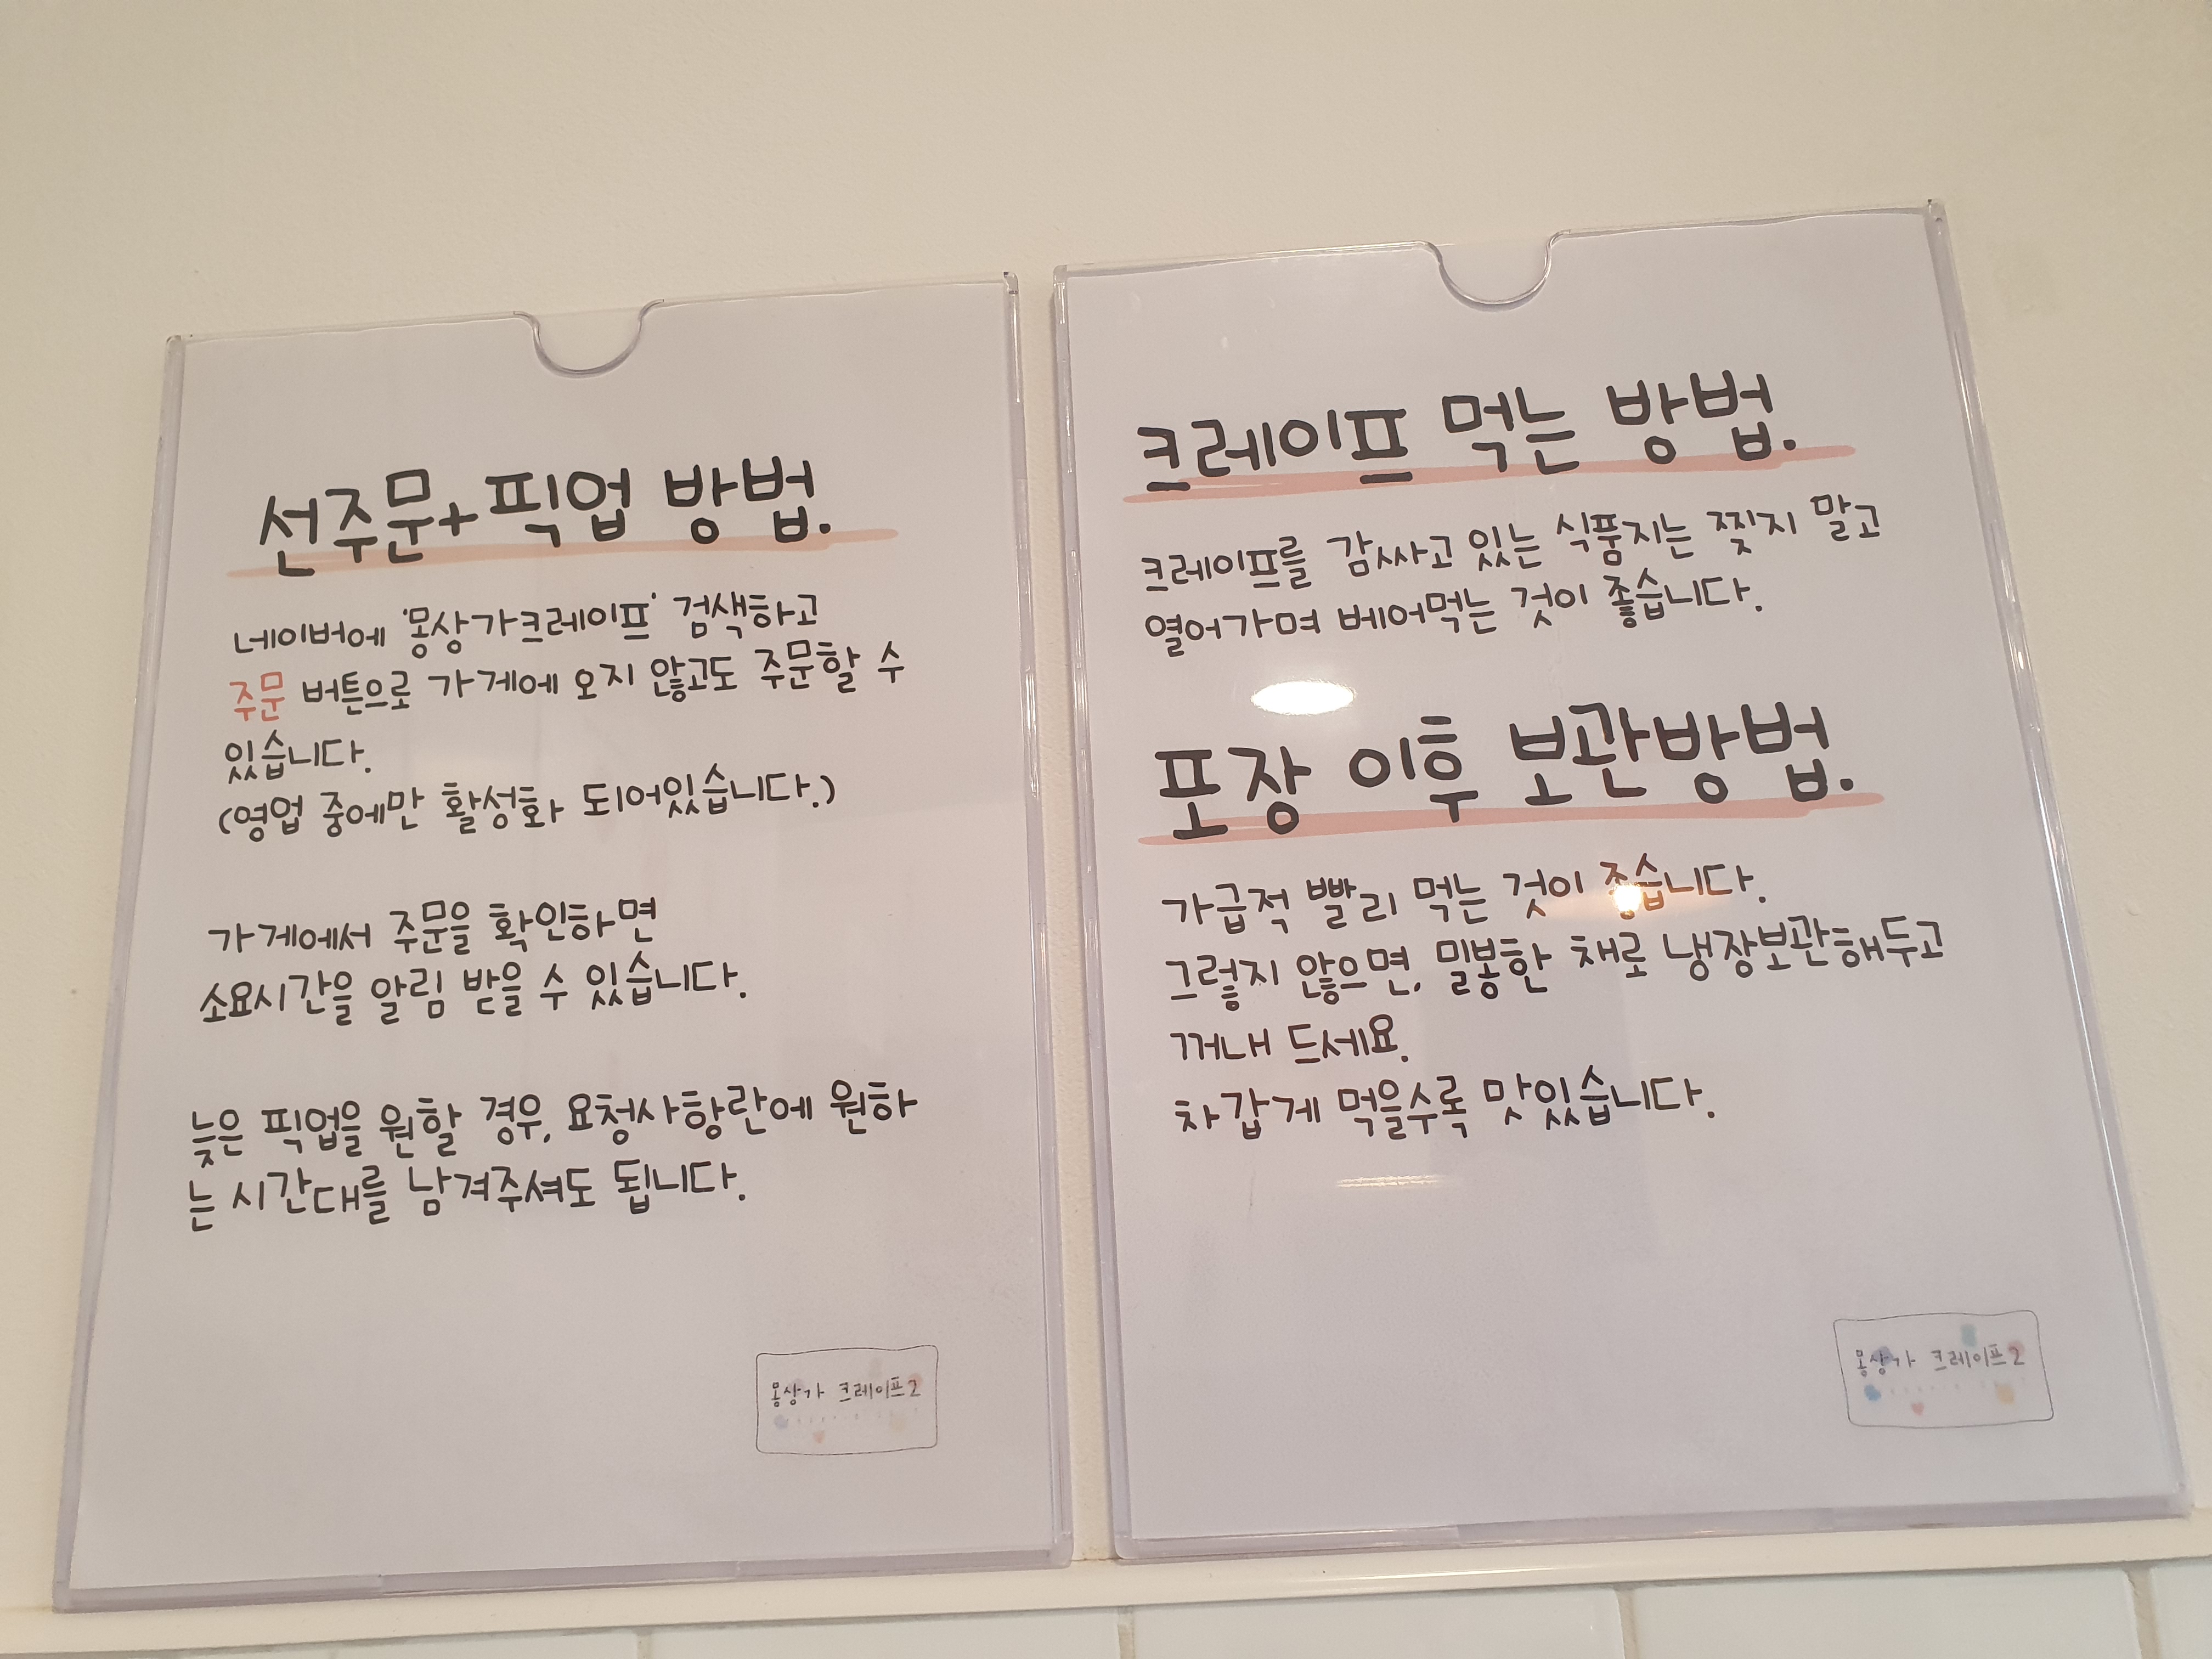 선주문+픽업 방법.
네이버에 '몽상가크레이프' 검색하고
주문 버튼으로 가게에 오지 않고도 주문할 수
있습니다.
(영업 중에만 활성화 되어있습니다.)
가게에서 주문을 확인하면
소요시간을 알림 받을 수 있습니다.
늦은 픽업을 원할 경우, 요청사항란에 원하
는 시간대를 남겨주셔도 됩니다.
몽상가 크레이프2
크레이프 먹는 방법.
크레이프를 감싸고 있는 식품지는 찢지 말고
열어가며 베어먹는 것이 좋습니다.
포장 이후 보관방법.
가급적 빨리 먹는 것이 좋습니다.
그렇지 않으면, 밀봉한 채로 냉장보관해두고
꺼내 드세요.
차갑게 먹을수록 맛있습니다.
몽상가 크레이프2